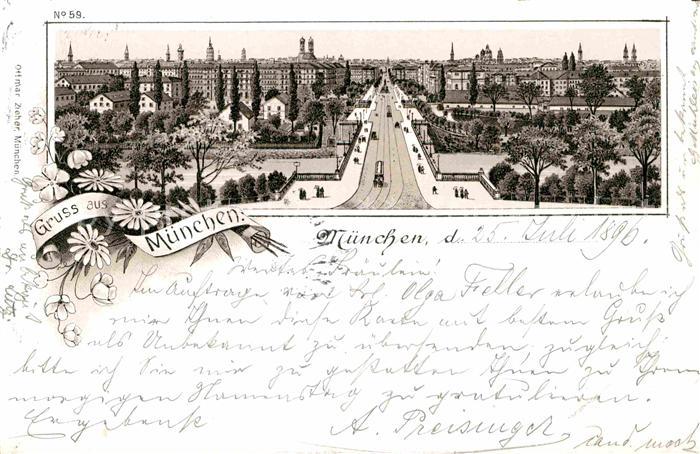 No 59.
Ottmar Zieher, München.
Gruss aus
München.
München, d. 25. Juli 1896.
Fräulein!
Im Auftrage von Frl. Olga Feller erlaube ich
mir Ihnen diese Karte mit bestem Gruß
als Unbekannt zu übersenden zugleich
bitte ich Sie mir zu gestatten Ihnen zu Ihrem
morgigen Namenstag zu gratulieren.
Ergebenst
A. Preisinger
cand.